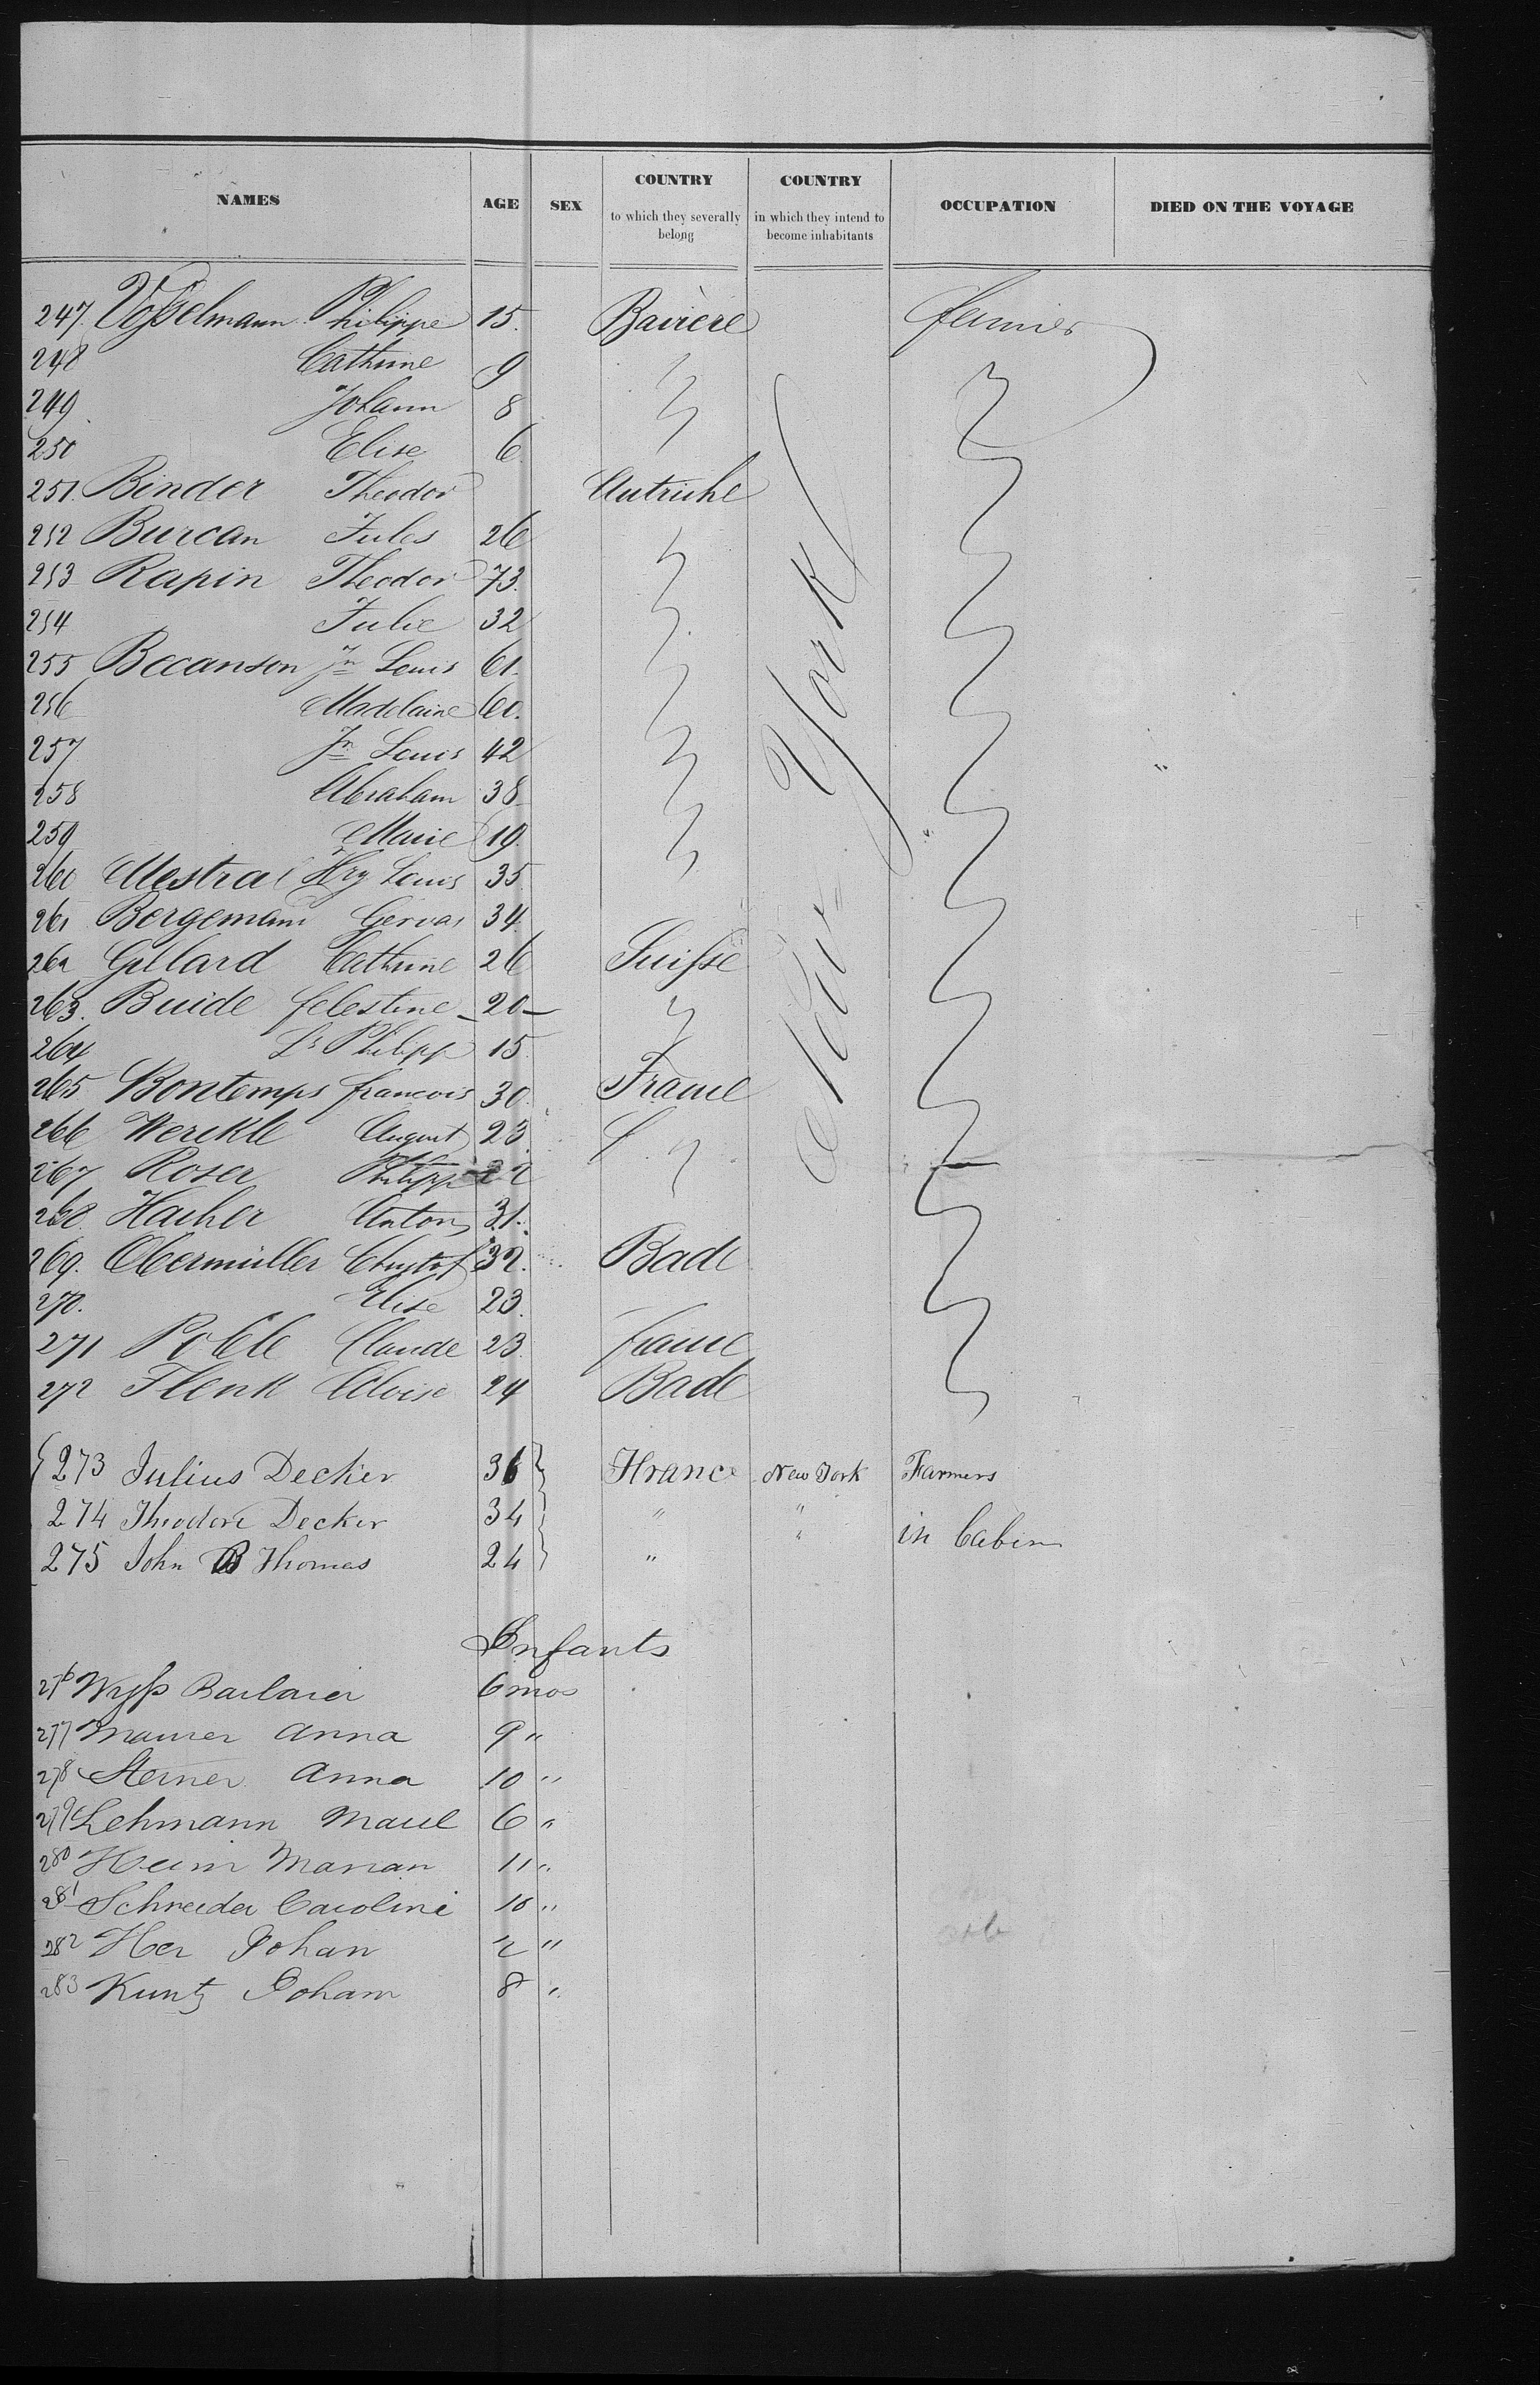 NAMES AGE SEX COUNTRY to which they severally belong COUNTRY in which they intend to become inhabitants OCCUPATION DIED ON THE VOYAGE
247. Vosselmann Philippe 15. Bavière fermier
248 Cathrine 9
249. Johann 8
250 Elise 6
251. Binder Theodor Autriche
252 Burcan Jules 26
253 Rapin Theodor 73.
254 Julie 32
255 Becanson Jn Louis 61.
256 Madelaine 60.
257 Jn Louis 42
258 Abraham 38
259 Marie 19.
260 Mestral Hry Louis 35
261 Bergemann Gervas 34
262 Gillard Cathrine 26 Suisse
263. Buide Celestine - 20 -
264 Ls Philipp 15
265 Bontemps francois 30 France
266 Werckle August 23
267 Roser Philipp 22
268. Hacher Anton 31.
269. Obermüller Chrystof 32. Bade
270. Elise 23.
271 Poble Claude 23. france
272 Flenk Aloise 24 Bade
New York
273 Julius Decker 36 France New York Farmers
274 Theodore Decker 34 " "
in Cabin
275 John B Thomas 24 " "
Infants
276 Wyss Barbaier 6 mos
277 Maurer Anna 9 "
278 Sterner Anna 10 "
279 Lehmann Marie 6 "
280 Heim Marian 11 "
281 Schneider Caroline 10 "
282 Her Johan 2 "
283 Kuntz Joham 8 "